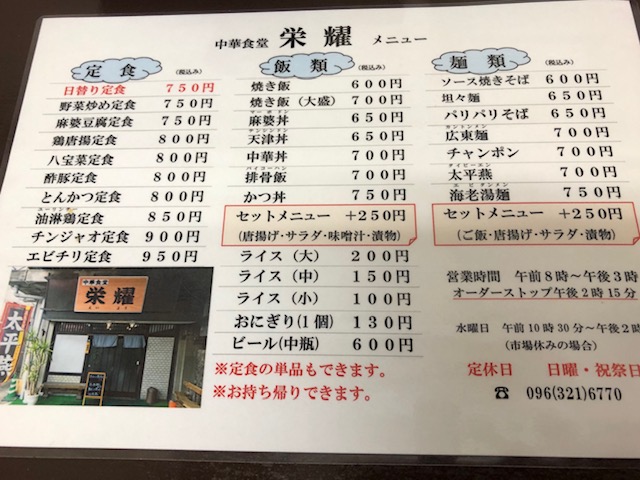 中華食堂 栄耀 メニュー
定食 (税込み)
日替り定食 750円
野菜炒め定食 750円
麻婆豆腐定食 750円
鶏唐揚定食 800円
八宝菜定食 800円
酢豚定食 800円
とんかつ定食 800円
油淋鶏定食 850円
チンジャオ定食 900円
エビチリ定食 950円
中華食堂
栄耀
太平燕
飯類 (税込み)
焼き飯 600円
焼き飯（大盛）700円
麻婆丼 650円
天津丼 650円
中華丼 700円
排骨飯 700円
かつ丼 750円
セットメニュー +250円
(唐揚げ・サラダ・味噌汁・漬物)
ライス（大） 200円
ライス（中） 150円
ライス（小） 100円
おにぎり(1個) 130円
ビール(中瓶) 600円
※定食の単品もできます。
※お持ち帰りできます。
麺類 (税込み)
ソース焼きそば 600円
坦々麺 650円
パリパリそば 650円
広東麺 700円
チャンポン 700円
太平燕 700円
海老湯麺 750円
セットメニュー +250円
(ご飯・唐揚げ・サラダ・漬物)
営業時間 午前8時～午後3時
オーダーストップ午後2時15分
水曜日 午前10時30分～午後2
(市場休みの場合)
定休日 日曜・祝祭日
☎ 096(321)6770